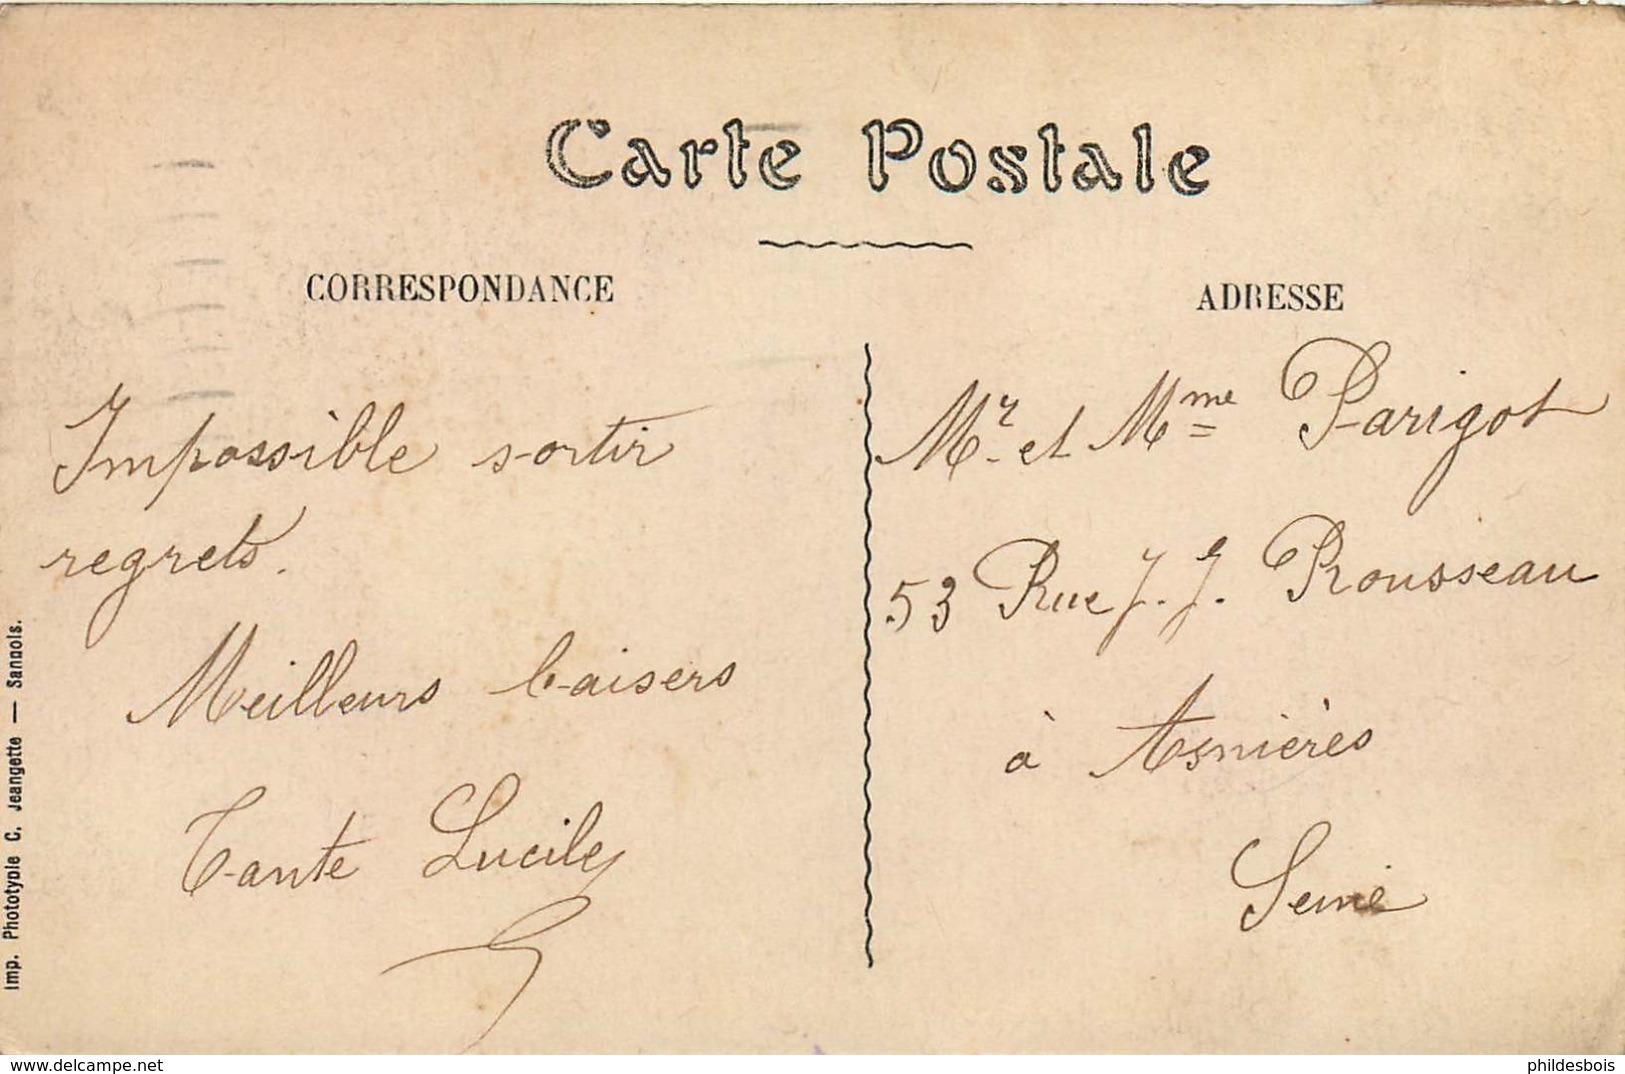 Carte Postale
CORRESPONDANCE
Impossible sortir
regrets.
Meilleurs baisers
Tante Lucile
ADRESSE
Mr et Mme Parigot
53 Rue J. J. Rousseau
à Asnières
Seine
Imp. Phototypie C. Jeangette — Sannois.
www.delcampe.net
phildesbois